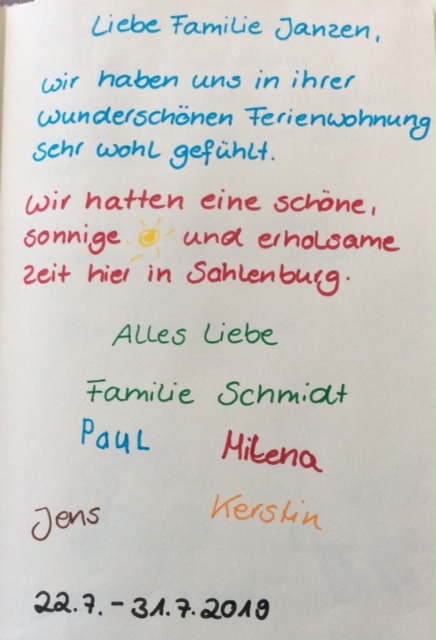 Liebe Familie Janzen,
wir haben uns in ihrer
wunderschönen Ferienwohnung
sehr wohl gefühlt.
Wir hatten eine schöne,
sonnige und erholsame
Zeit hier in Sahlenburg.
Alles Liebe
Familie Schmidt
Paul Milena
Jens Kerstin
22.7. - 31.7.2019